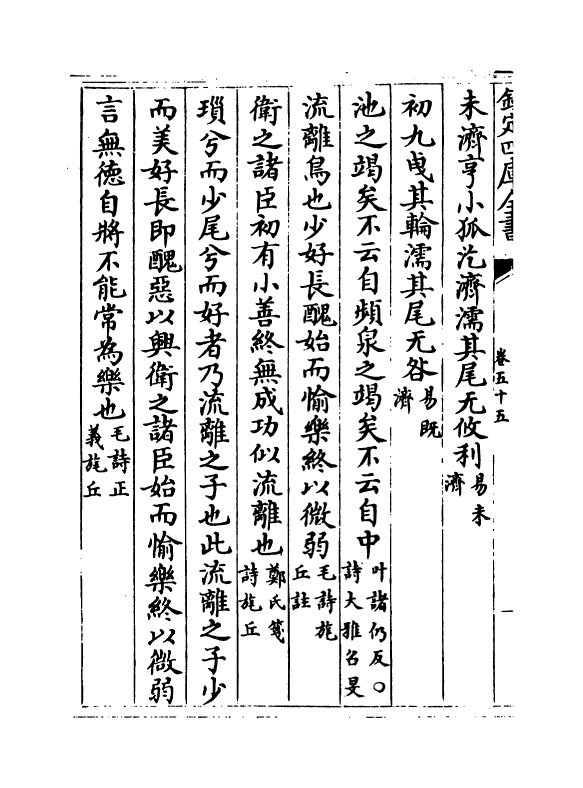 欽定四庫全書
卷五十五
未濟亨小狐汔濟濡其尾无攸利易未濟
初九曳其輪濡其尾无咎易既濟
池之竭矣不云自頻泉之竭矣不云自中叶諸仍反○詩大雅召旻
流離鳥也少好長醜始而愉樂終以微弱毛詩旄丘註
衛之諸臣初有小善終無成功似流離也鄭氏箋詩旄丘
瑣兮而少尾兮而好者乃流離之子也此流離之子少
而美好長即醜惡以興衛之諸臣始而愉樂終以微弱
言無德自將不能常為樂也毛詩正義旄丘